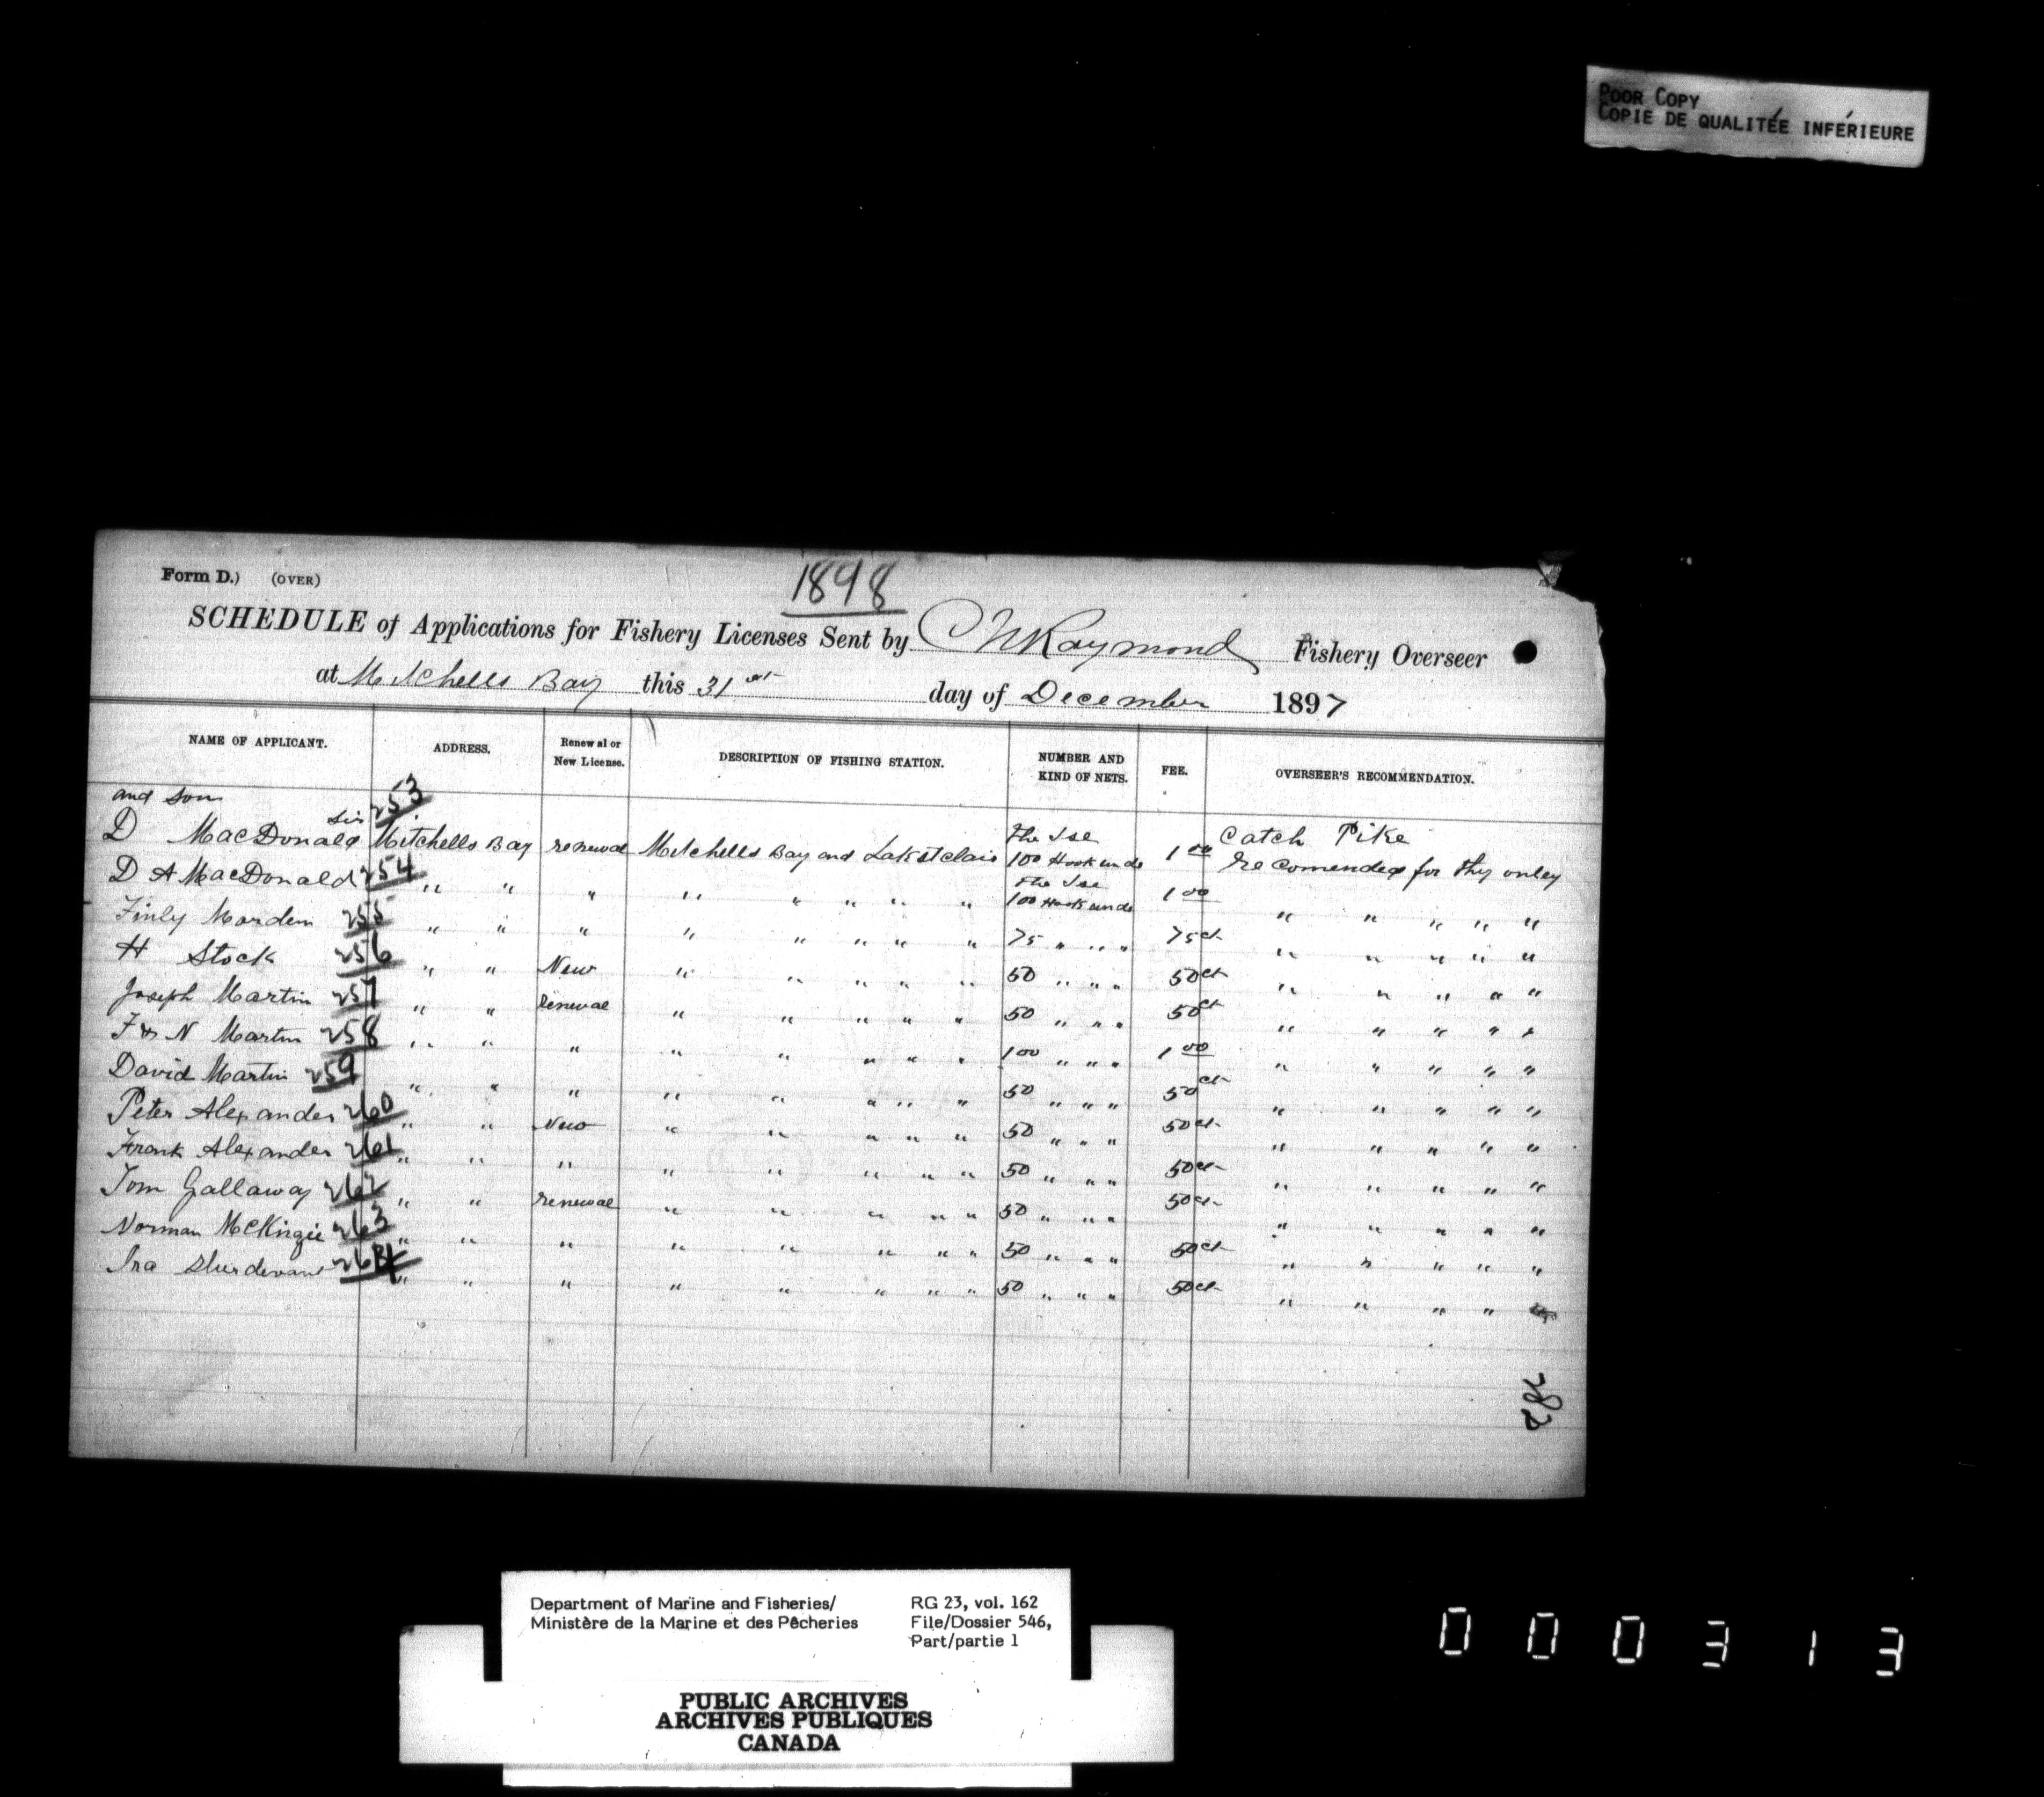 POOR COPY
COPIE DE QUALITÉE INFÉRIEURE
1898
Form D.) (OVER)
SCHEDULE of Applications for Fishery Licenses Sent by C N Raymond Fishery Overseer
at Mitchells Bay this 31st day of December 1897
NAME OF APPLICANT. ADDRESS. Renewal or New License. DESCRIPTION OF FISHING STATION. NUMBER AND KIND OF NETS. FEE. OVERSEER'S RECOMMENDATION.
and son
D MacDonald 253 Mitchells Bay renewal Mitchells Bay and Lak st clair 100 Hook unde the Ise 1 00 Catch Pike recomended for thy onley
D A MacDonald 254 " " " " " " " " 100 Hook unde the Ise 1 00 " " " " "
Finly Marden 255 " " " " " " " " 75 " " " 75 ct " " " " "
H Stock 256 " " New " " " " " 50 " " " 50 ct " " " " "
Joseph Martin 257 " " renewal " " " " " 50 " " " 50 ct " " " " "
F & N Martin 258 " " " " " " " " 100 " " " 1 00 " " " " "
David Martin 259 " " " " " " " " 50 " " " 50 ct " " " " "
Peter Alexander 260 " " New " " " " " 50 " " " 50 ct " " " " "
Frank Alexander 261 " " " " " " " " 50 " " " 50 ct " " " " "
Tom Gallaway 262 " " renewal " " " " " 50 " " " 50 ct " " " " "
Norman McKinzie 263 " " " " " " " " 50 " " " 50 ct " " " " "
Ira Sturdevant 264 " " " " " " " " 50 " " " 50 ct " " " "
282
Department of Marine and Fisheries/
Ministère de la Marine et des Pêcheries
RG 23, vol. 162
File/Dossier 546,
Part/partie 1
PUBLIC ARCHIVES
ARCHIVES PUBLIQUES
CANADA
000313